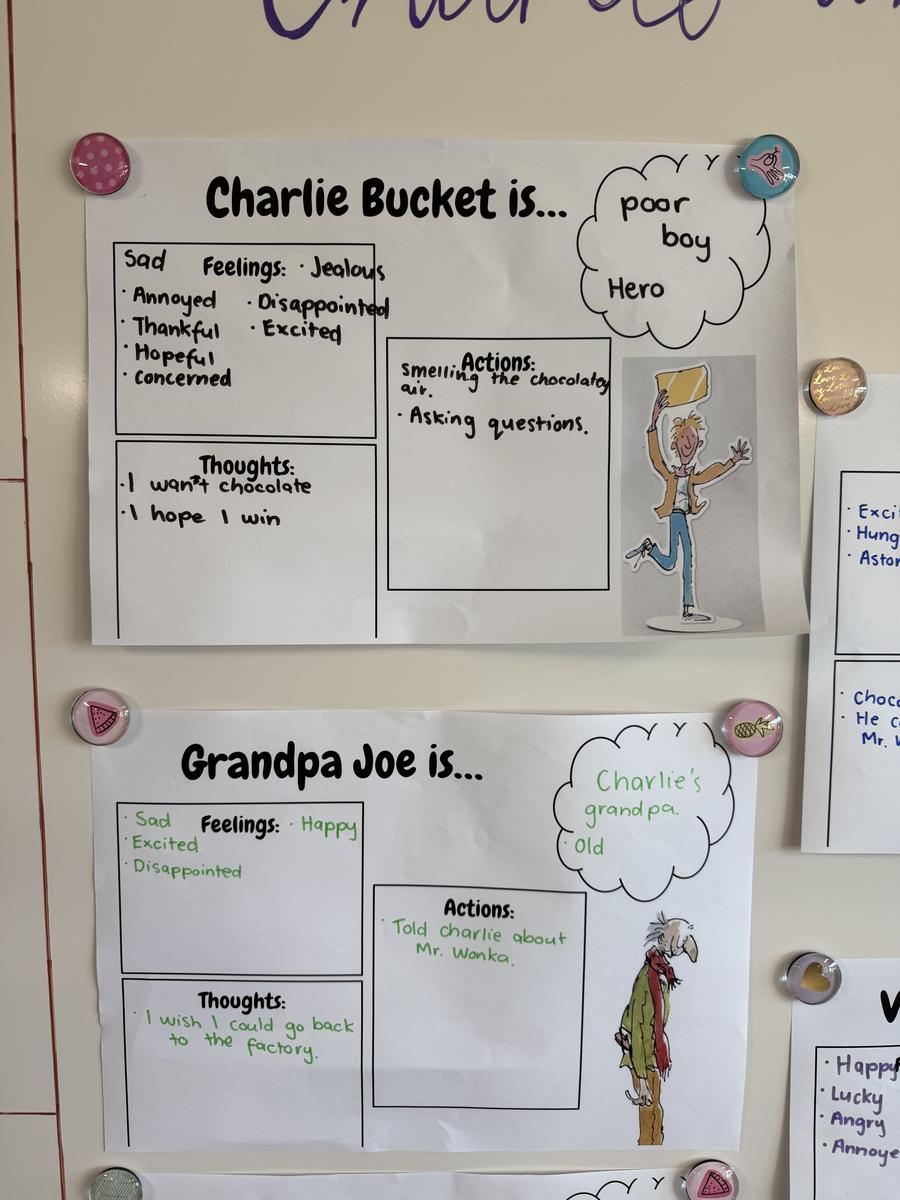 Charlie Bucket is...
poor
boy
Hero
Sad Feelings: · Jealous
· Annoyed · Disappointed
· Thankful · Excited
· Hopeful
· concerned
Actions:
smelling the chocolatey
air.
· Asking questions.
Thoughts:
· I want chocolate
· I hope I win
Grandpa Joe is...
Charlie's
grandpa.
· Old
· Sad Feelings: · Happy
· Excited
· Disappointed
Actions:
· Told charlie about
Mr. Wonka.
Thoughts:
· I wish I could go back
to the factory.
· He
Mr.
· Happy
· Lucky
· Angry